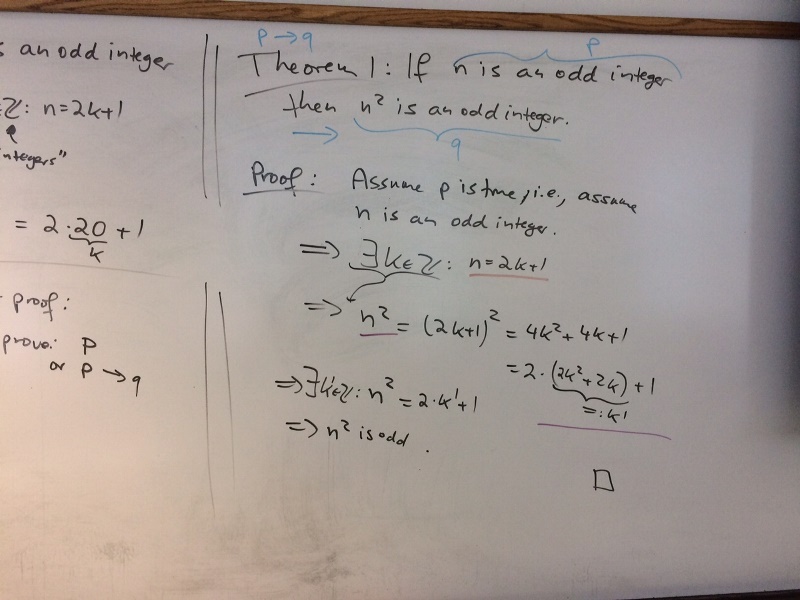 s an odd integer
∈ℤ: n=2k+1
integers"
= 2·20+1
k
proof:
prove: p
or p→q
p→q
p
Theorem 1: If n is an odd integer
then n² is an odd integer.
q
Proof: Assume p is true, i.e., assume
n is an odd integer.
⇒ ∃k∈ℤ: n=2k+1
⇒ n² = (2k+1)² = 4k²+4k+1
= 2·(2k²+2k)+1
=:k'
⇒∃k'∈ℤ: n² = 2·k'+1
⇒ n² is odd.
□